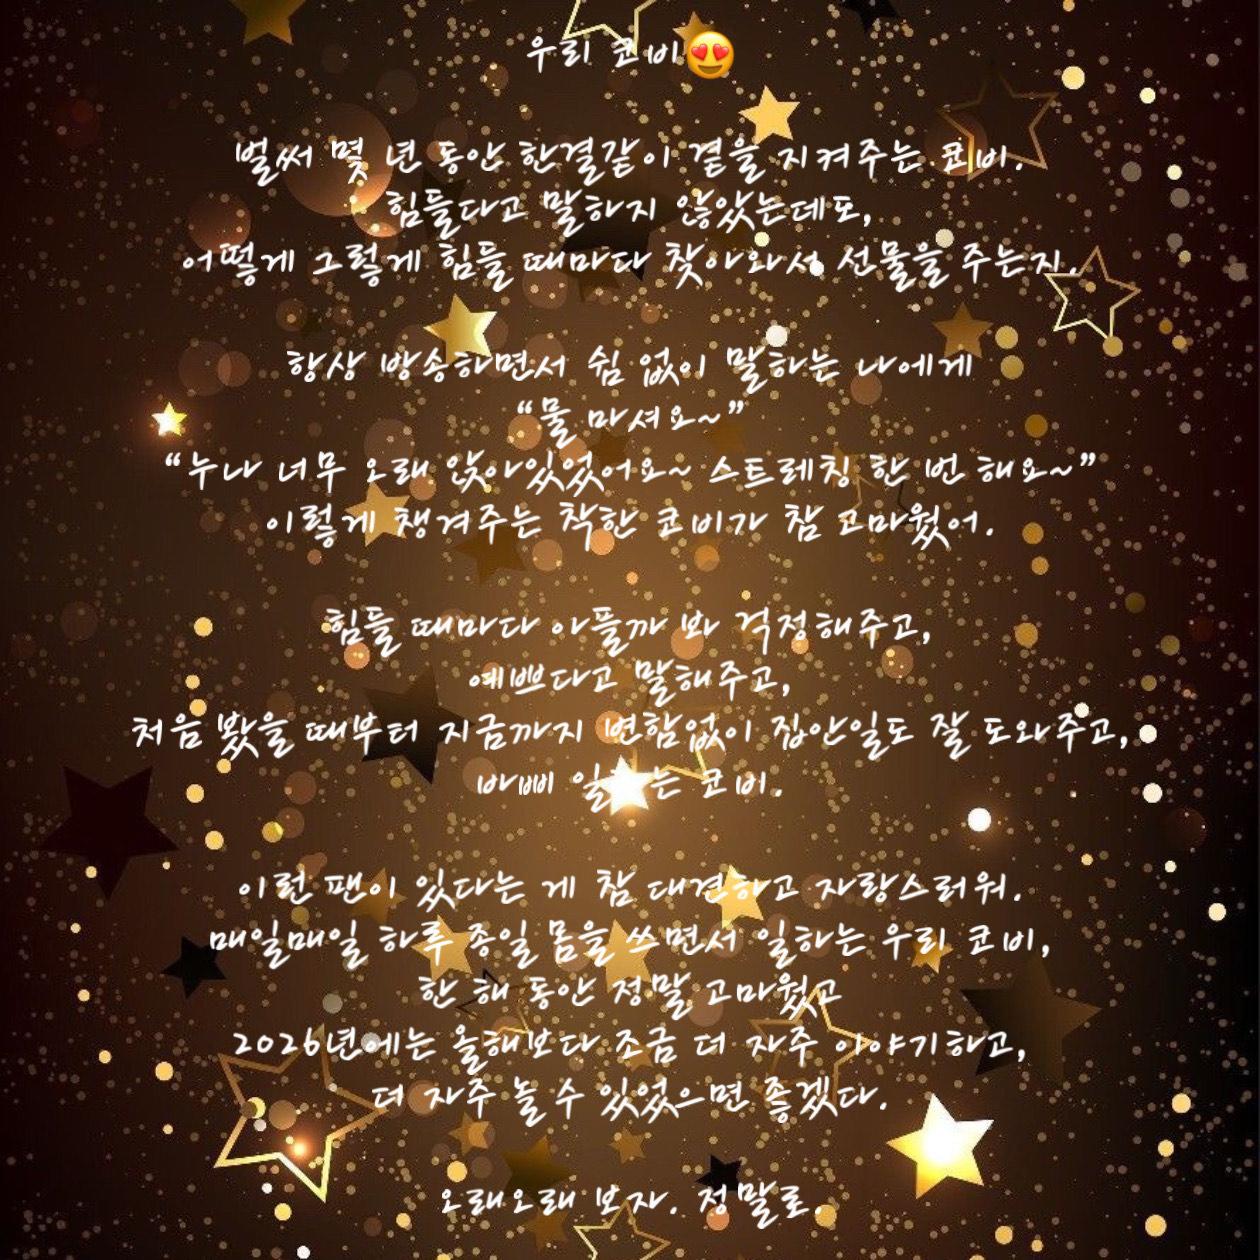 우리 코비😍
벌써 몇 년 동안 한결같이 곁을 지켜주는 코비.
힘들다고 말하지 않았는데도,
어떻게 그렇게 힘들 때마다 찾아와서 선물을 주는지.
항상 방송하면서 쉼 없이 말하는 나에게
“물 마셔요~”
“누나 너무 오래 앉아있었어요~ 스트레칭 한 번 해요~”
이렇게 챙겨주는 착한 코비가 참 고마웠어.
힘들 때마다 아플까 봐 걱정해주고,
예쁘다고 말해주고,
처음 봤을 때부터 지금까지 변함없이 집안일도 잘 도와주고,
바삐 일하는 코비.
이런 팬이 있다는 게 참 대견하고 자랑스러워.
매일매일 하루 종일 몸을 쓰면서 일하는 우리 코비,
한 해 동안 정말 고마웠고
2026년에는 올해보다 조금 더 자주 이야기하고,
더 자주 놀 수 있었으면 좋겠다.
오래오래 보자. 정말로.